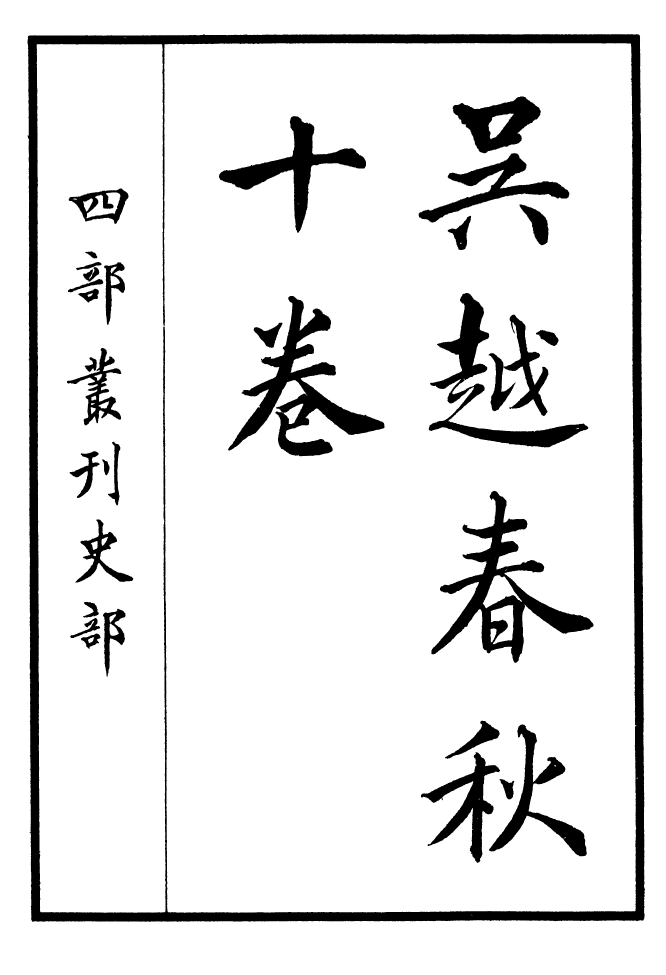 吳越春秋
十卷
四部叢刊史部